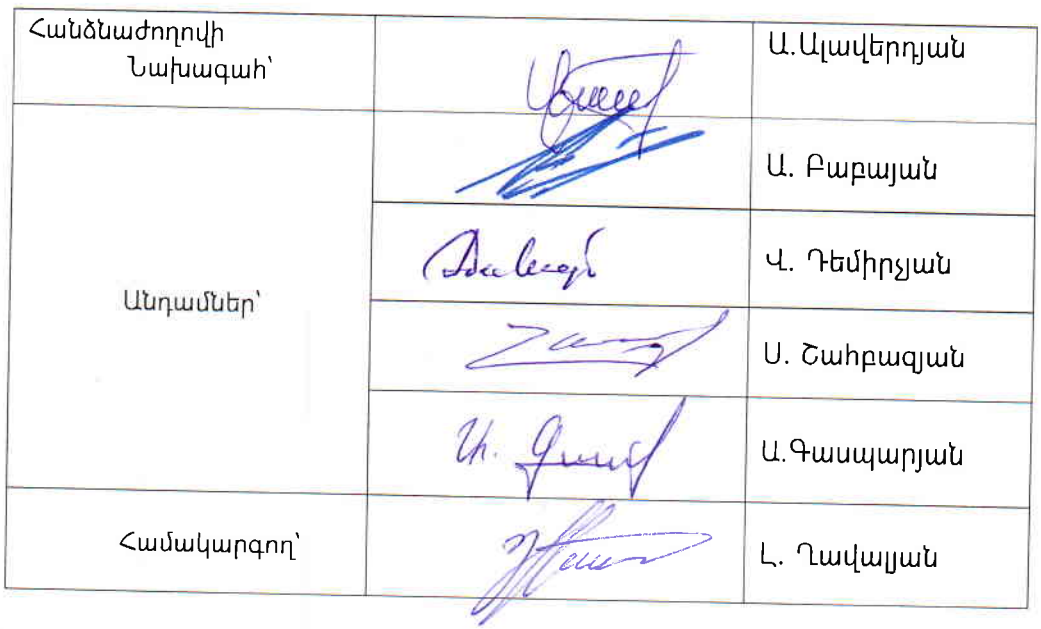 Հանձնաժողովի
Նախագահ՝
Ա.Ալավերդյան
Ա. Բաբայան
Վ. Դեմիրչյան
Անդամներ՝
Ս. Շահբազյան
Ա.Գասպարյան
Համակարգող՝
Լ. Ղավալյան